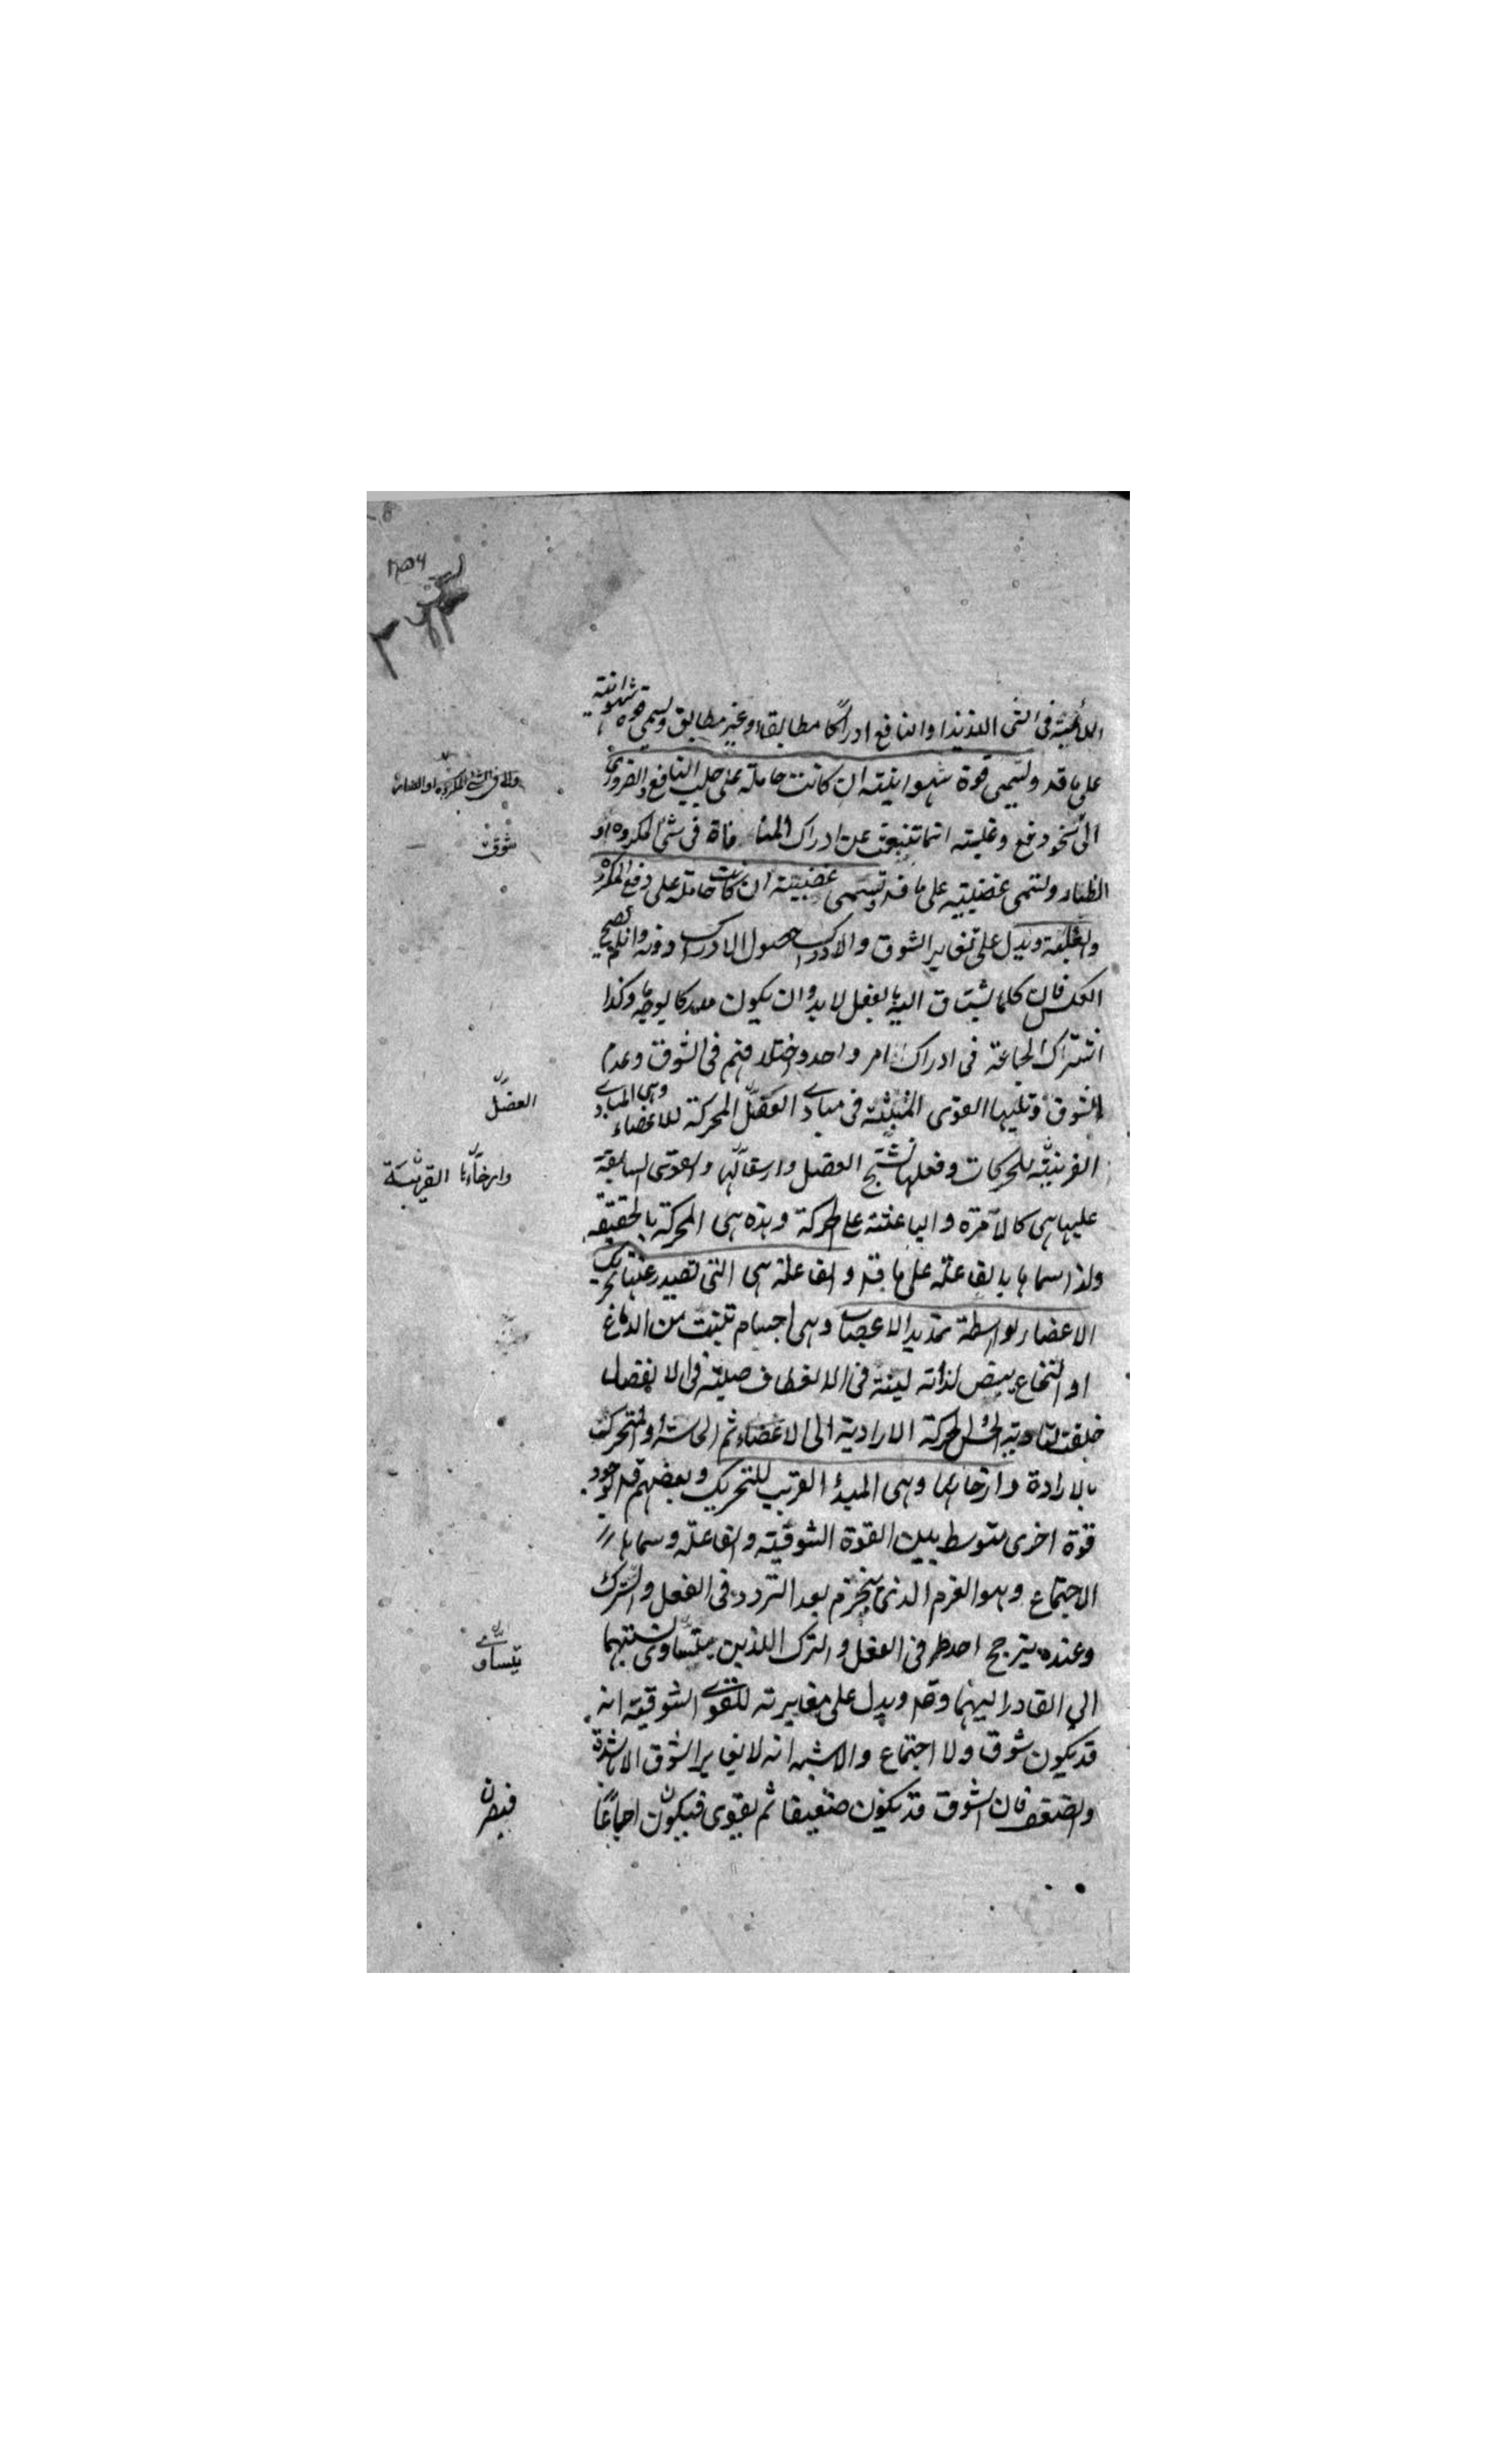 الملائمة فى الشئ اللذيذ او النافع ادراكًا مطابقا او غير مطابق ويسمى قوة شهوانية
على ما قد ويسمى قوة شهوانية ان كانت حاملة على جلب النافع والضرورى
الى نحو دفع وغلبته انما تنبعث عن ادراك المنافاة فى شئ المكروه او
الضار ويسمى غضبية على ما قد وتسمى غضبية ان كانت حاملة على دفع المكروه
والغلبة ويدل على تغاير الشوق والادراك حصول الادراك دونه وان لم يصح
العكس فان كلما يشتاق اليه بالفعل لا بد وان يكون مدركا بوجه ما وكذا
اشتراك الجماعة فى ادراك امر واحد واختلافهم فى الشوق وعدم
الشوق وتليها القوى المنبثة فى مبادى العضل المحركة للاعضاء وهى المبادى
القريبة للحركات وفعلها تشنج العضل وارسالها والقوى السابقة
عليها هى كالآمرة والباعثة على الحركة وهذه هى المحركة بالحقيقة
ولذا سماها بالفاعلة على ما قد والفاعلة هى التى تصدر عنها تحريك
الاعضاء بواسطة تمديد الاعصاب وهى اجسام تنبت من الدماغ
او النخاع بيض لدنة لينة فى الانعطاف صلبة فى الانفصال
خلقت لتادية الحس والحركة الارادية الى الاعضاء ثم الحاسة والمتحركة
بالارادة وارخائها وهى المبدأ القريب للتحريك وبعضهم قد
قوة اخرى متوسط بين القوة الشوقية والفاعلة وسماها
الاجتماع وهو العزم الذى ينجزم بعد التردد فى الفعل والترك
وعنده يترجح احد طرفى الفعل والترك اللذين يتساوى نسبتهما
الى القادر اليهما وقد ويدل على مغايرته للقوى الشوقية انه
قد يكون شوق ولا اجتماع والاشبه انه لا يغاير الشوق الا بالشدة
والضعف فان الشوق قد يكون ضعيفا ثم يقوى فيكون اجماعًا
شوق
العضل
وارخاءها القريبة
يتساوى